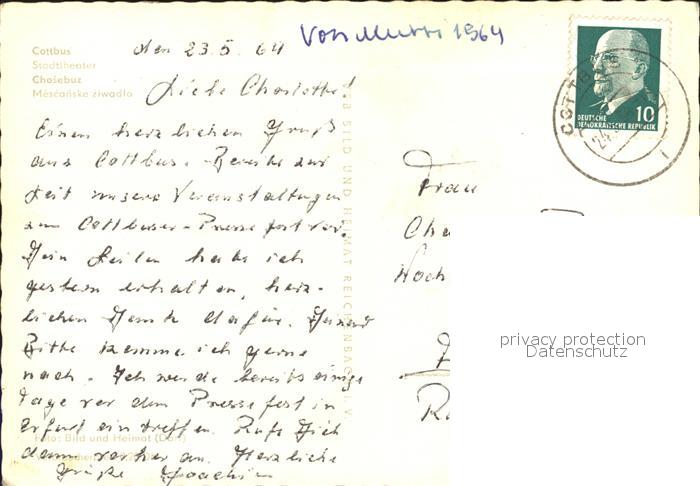 Von Mutti 1964
Cottbus
Stadttheater
Chośebuz
Měsćańske źiwadło
den 23.5.64
Liebe Charlotte!
Einen herzlichen Gruß
aus Cottbus. Bereite zur
Zeit unsere Veranstaltungen
zum Cottbuser-Pressefest vor.
Dein Zeilen habe ich
gestern erhalten, herz-
lichen Dank dafür. Deiner
Bitte komme ich gerne
nach. Ich werde bereits einige
Tage vor dem Pressefest in
Erfurt eintreffen. Rufe Dich
dann vorher an. Herzliche
Grüße Joachim
Foto: Bild und Heimat (Dörr)
VEB BILD UND HEIMAT REICHENBACH I. V.
DEUTSCHE
DEMOKRATISCHE REPUBLIK
10
COTTBUS
Frau
Cha
Hoch
privacy protection
Datenschutz